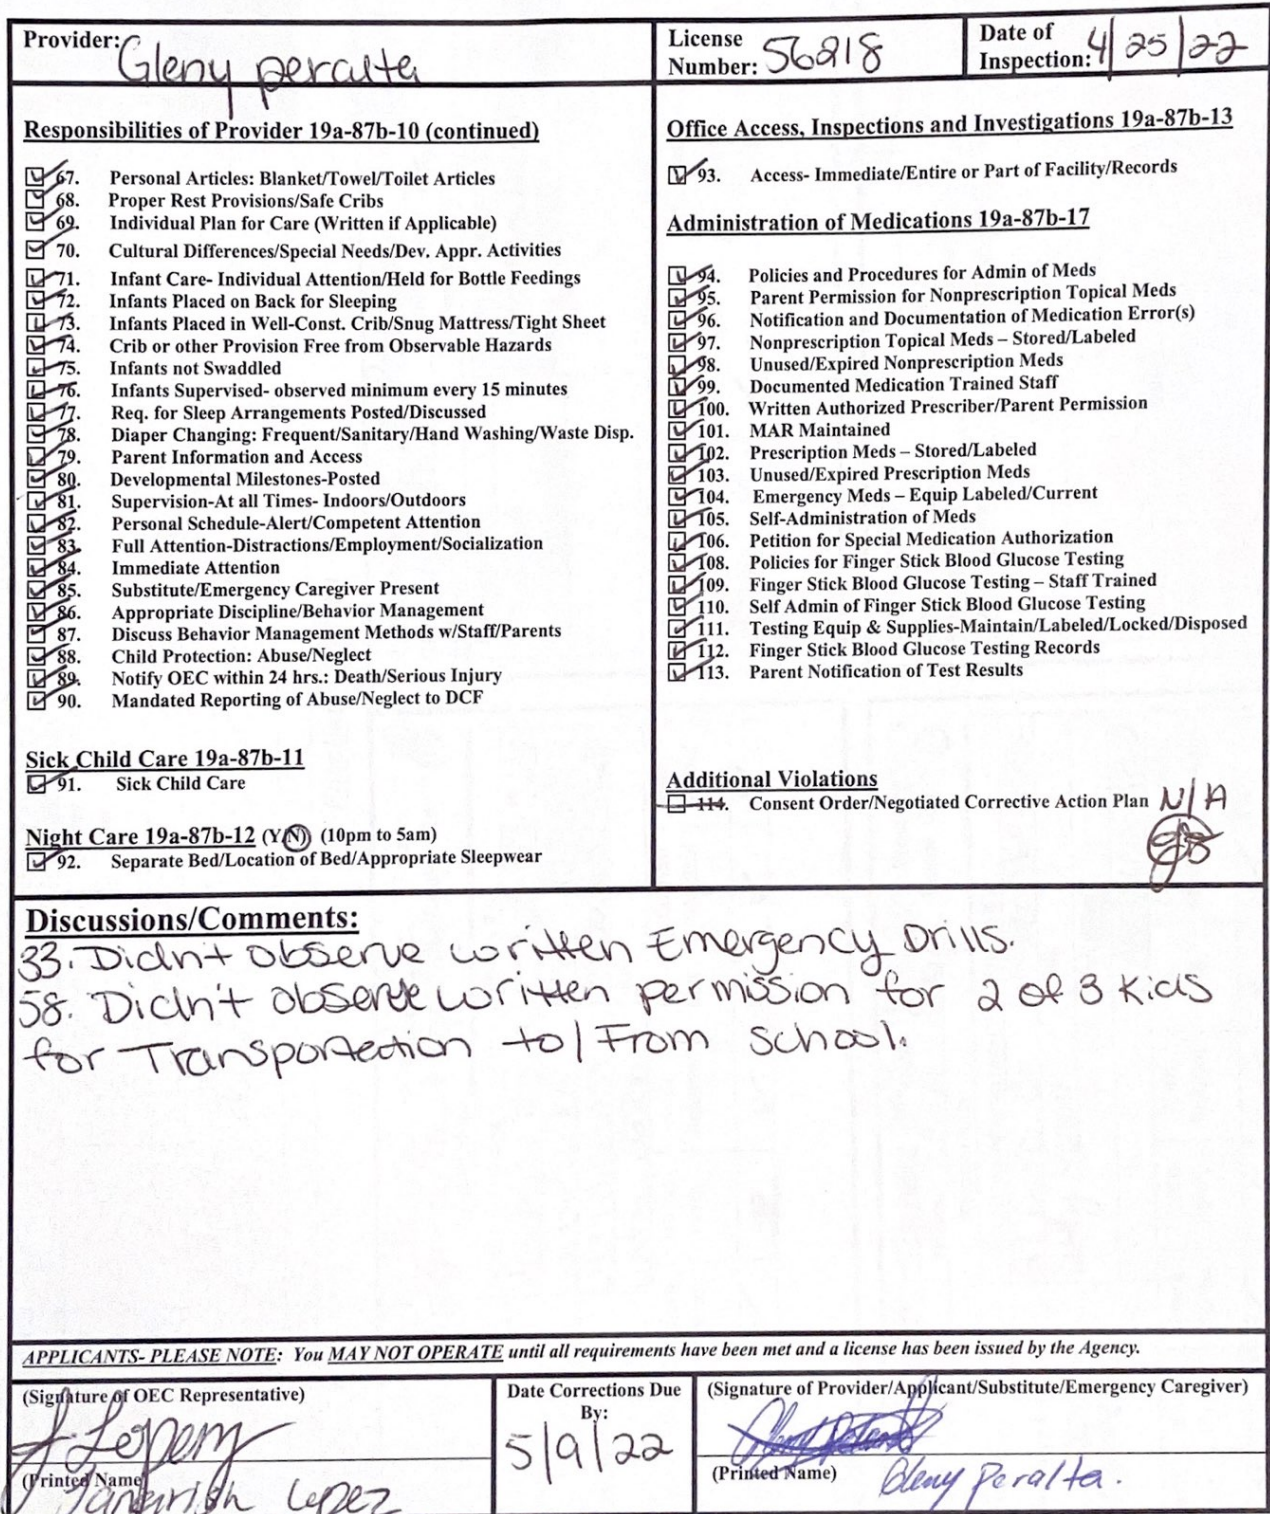 Provider: Gleny peralta
License Number: 56218
Date of Inspection: 4/25/22
Responsibilities of Provider 19a-87b-10 (continued)
67. Personal Articles: Blanket/Towel/Toilet Articles
68. Proper Rest Provisions/Safe Cribs
69. Individual Plan for Care (Written if Applicable)
70. Cultural Differences/Special Needs/Dev. Appr. Activities
71. Infant Care- Individual Attention/Held for Bottle Feedings
72. Infants Placed on Back for Sleeping
73. Infants Placed in Well-Const. Crib/Snug Mattress/Tight Sheet
74. Crib or other Provision Free from Observable Hazards
75. Infants not Swaddled
76. Infants Supervised- observed minimum every 15 minutes
77. Req. for Sleep Arrangements Posted/Discussed
78. Diaper Changing: Frequent/Sanitary/Hand Washing/Waste Disp.
79. Parent Information and Access
80. Developmental Milestones-Posted
81. Supervision-At all Times- Indoors/Outdoors
82. Personal Schedule-Alert/Competent Attention
83. Full Attention-Distractions/Employment/Socialization
84. Immediate Attention
85. Substitute/Emergency Caregiver Present
86. Appropriate Discipline/Behavior Management
87. Discuss Behavior Management Methods w/Staff/Parents
88. Child Protection: Abuse/Neglect
89. Notify OEC within 24 hrs.: Death/Serious Injury
90. Mandated Reporting of Abuse/Neglect to DCF
Sick Child Care 19a-87b-11
91. Sick Child Care
Night Care 19a-87b-12 (Y/N) (10pm to 5am)
92. Separate Bed/Location of Bed/Appropriate Sleepwear
Office Access, Inspections and Investigations 19a-87b-13
93. Access- Immediate/Entire or Part of Facility/Records
Administration of Medications 19a-87b-17
94. Policies and Procedures for Admin of Meds
95. Parent Permission for Nonprescription Topical Meds
96. Notification and Documentation of Medication Error(s)
97. Nonprescription Topical Meds – Stored/Labeled
98. Unused/Expired Nonprescription Meds
99. Documented Medication Trained Staff
100. Written Authorized Prescriber/Parent Permission
101. MAR Maintained
102. Prescription Meds – Stored/Labeled
103. Unused/Expired Prescription Meds
104. Emergency Meds – Equip Labeled/Current
105. Self-Administration of Meds
106. Petition for Special Medication Authorization
108. Policies for Finger Stick Blood Glucose Testing
109. Finger Stick Blood Glucose Testing – Staff Trained
110. Self Admin of Finger Stick Blood Glucose Testing
111. Testing Equip & Supplies-Maintain/Labeled/Locked/Disposed
112. Finger Stick Blood Glucose Testing Records
113. Parent Notification of Test Results
Additional Violations
114. Consent Order/Negotiated Corrective Action Plan N/A
Discussions/Comments:
33. Didn't observe written Emergency Drills.
58. Didn't observe written permission for 2 of 3 Kids
for Transportection to/From school.
APPLICANTS- PLEASE NOTE: You MAY NOT OPERATE until all requirements have been met and a license has been issued by the Agency.
(Signature of OEC Representative)
Lopez
(Printed Name)
Lopez
Date Corrections Due
By:
5/9/22
(Signature of Provider/Applicant/Substitute/Emergency Caregiver)
(Printed Name) Gleny Peralta.